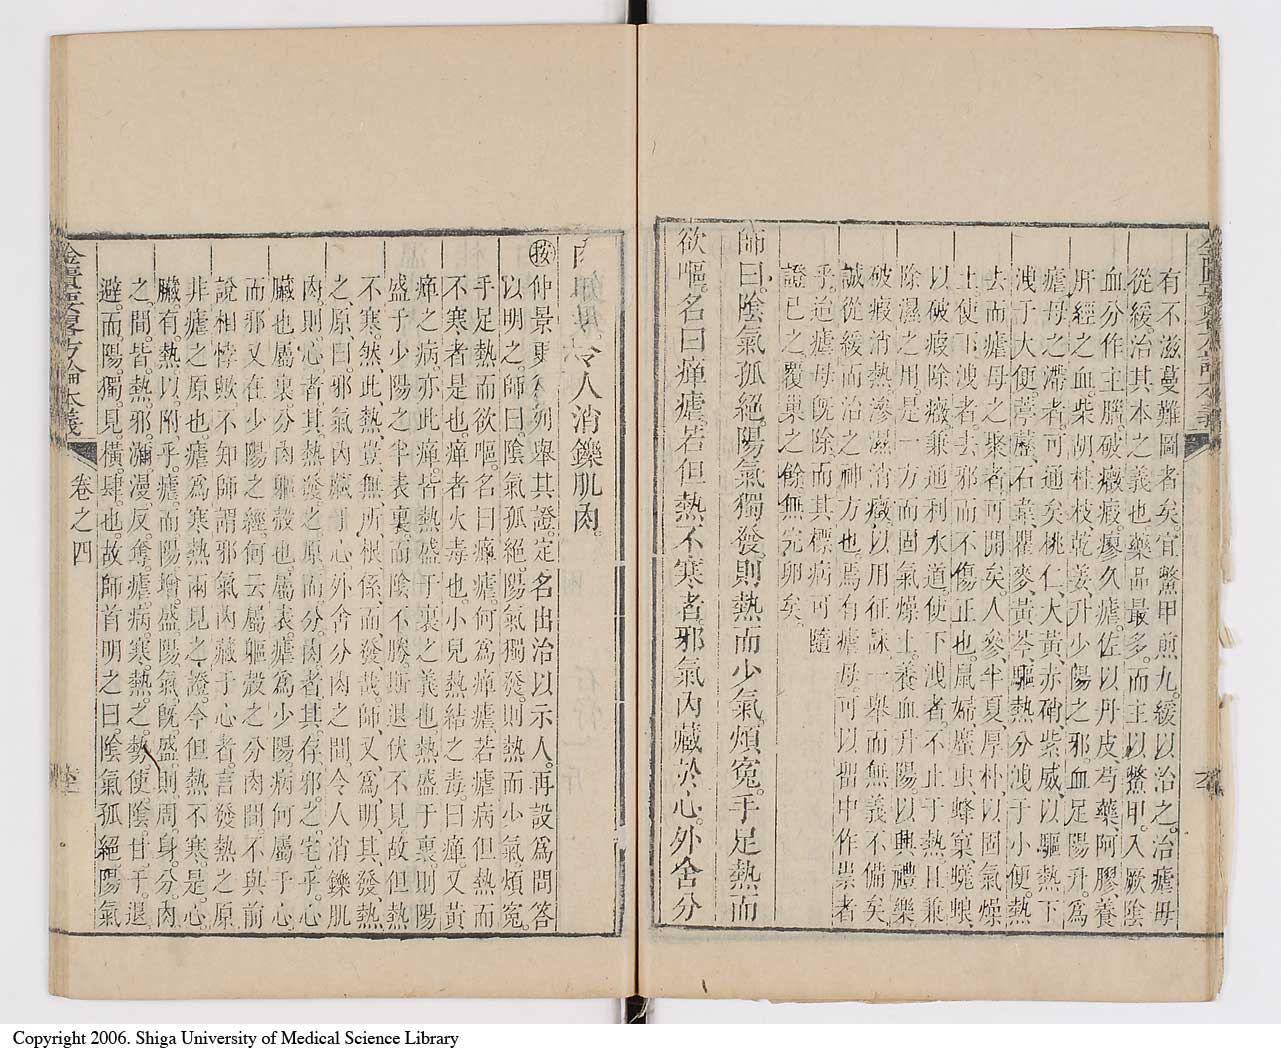 有不滋蔓難圖者矣。宜鱉甲煎丸。緩以治之。治瘧母
從緩。治其本之義也。藥品最多。而主以鱉甲。入厥陰
血分作主腦。破癥瘕。廖久瘧。佐以丹皮芍藥、阿膠養
肝經之血。柴胡桂枝乾姜、升少陽之邪。血足陽升。爲
瘧母之滯者。可通矣。桃仁、大黃、赤硝紫威、以驅熱下
洩于大便。葶藶石葦瞿麥、黃芩、驅熱分洩于小便。熱
去而瘧母之聚者可開矣。人參、半夏厚朴、以固氣燥
土。使下洩者。去邪而不傷正也。鼠婦䗪虫、蜂窠、蜣蜋、
以破瘕除癥。兼通利水道。使下洩者。不止于熱。且兼
除濕之用。是一方而固氣燥土。養血升陽。以興禮樂
破瘕消熱滲濕消癥。以用征誅。一舉而無義不備矣。
誠從緩而治之神方也。焉有瘧母。可以留中作祟者
乎。迨瘧母旣除。而其標病可隨
證已之。覆巢之餘無完卵矣。
師曰。陰氣孤絕。陽氣獨發。則熱而少氣。煩寃。手足熱而
欲嘔。名曰癉瘧。若但熱不寒者。邪氣內藏於心。外舍分
令人消鑠肌肉。
按仲景更 列舉其證。定名出治以示人。再設爲問答
以明之。師曰。陰氣孤絕。陽氣獨發。則熱而少氣煩寃。
手足熱而欲嘔。名曰癉瘧。何爲癉瘧。若瘧病但熱而
不寒者是也。癉者火毒也。小兒熱結之毒。曰癉。又黃
癉之病。亦此癉。皆熱盛于裏之義也。熱盛于裏。則陽
盛于少陽之半表裏。而陰不勝。斯退伏不見。故但熱
不寒。然此熱。豈無所根係。而發哉。師又爲明其發熱
之原。曰。邪氣內藏于心。外舍分肉之間。令人消鑠肌
肉。則心者其熱發之原。而分肉者其存邪之宅乎。心
臟也。屬裏。分肉軀殼也。屬表。瘧爲少陽病。何屬于心
而邪又在少陽之經。何云屬軀殼之分肉間。不與前
說相悖歟。不知師謂邪氣內藏于心者。言發熱之原
非瘧之原也。瘧爲寒熱兩見之證。今但熱不寒。是心
臟有熱。以附乎瘧。而陽增盛。陽氣旣盛。則周身分肉
之間。皆熱邪瀰漫。反奪瘧病寒熱之勢。使陰甘于退
避。而陽獨見橫肆也。故師首明之曰。陰氣孤絕。陽氣
金匱要畧方論本義 卷之四